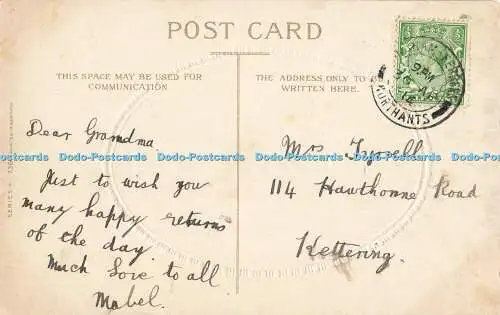 POST CARD
THIS SPACE MAY BE USED FOR
COMMUNICATION
THE ADDRESS ONLY TO
WRITTEN HERE.
Dear Grandma
Just to wish you
many happy returns
of the day.
Much Love to all
Mabel.
Mrs Tyrell
114 Hawthorne Road
Kettering.
2PM
NORTHANTS
SERIES
Dodo-Postcards Dodo-Postcards Dodo-Postcards Dodo-Postcards